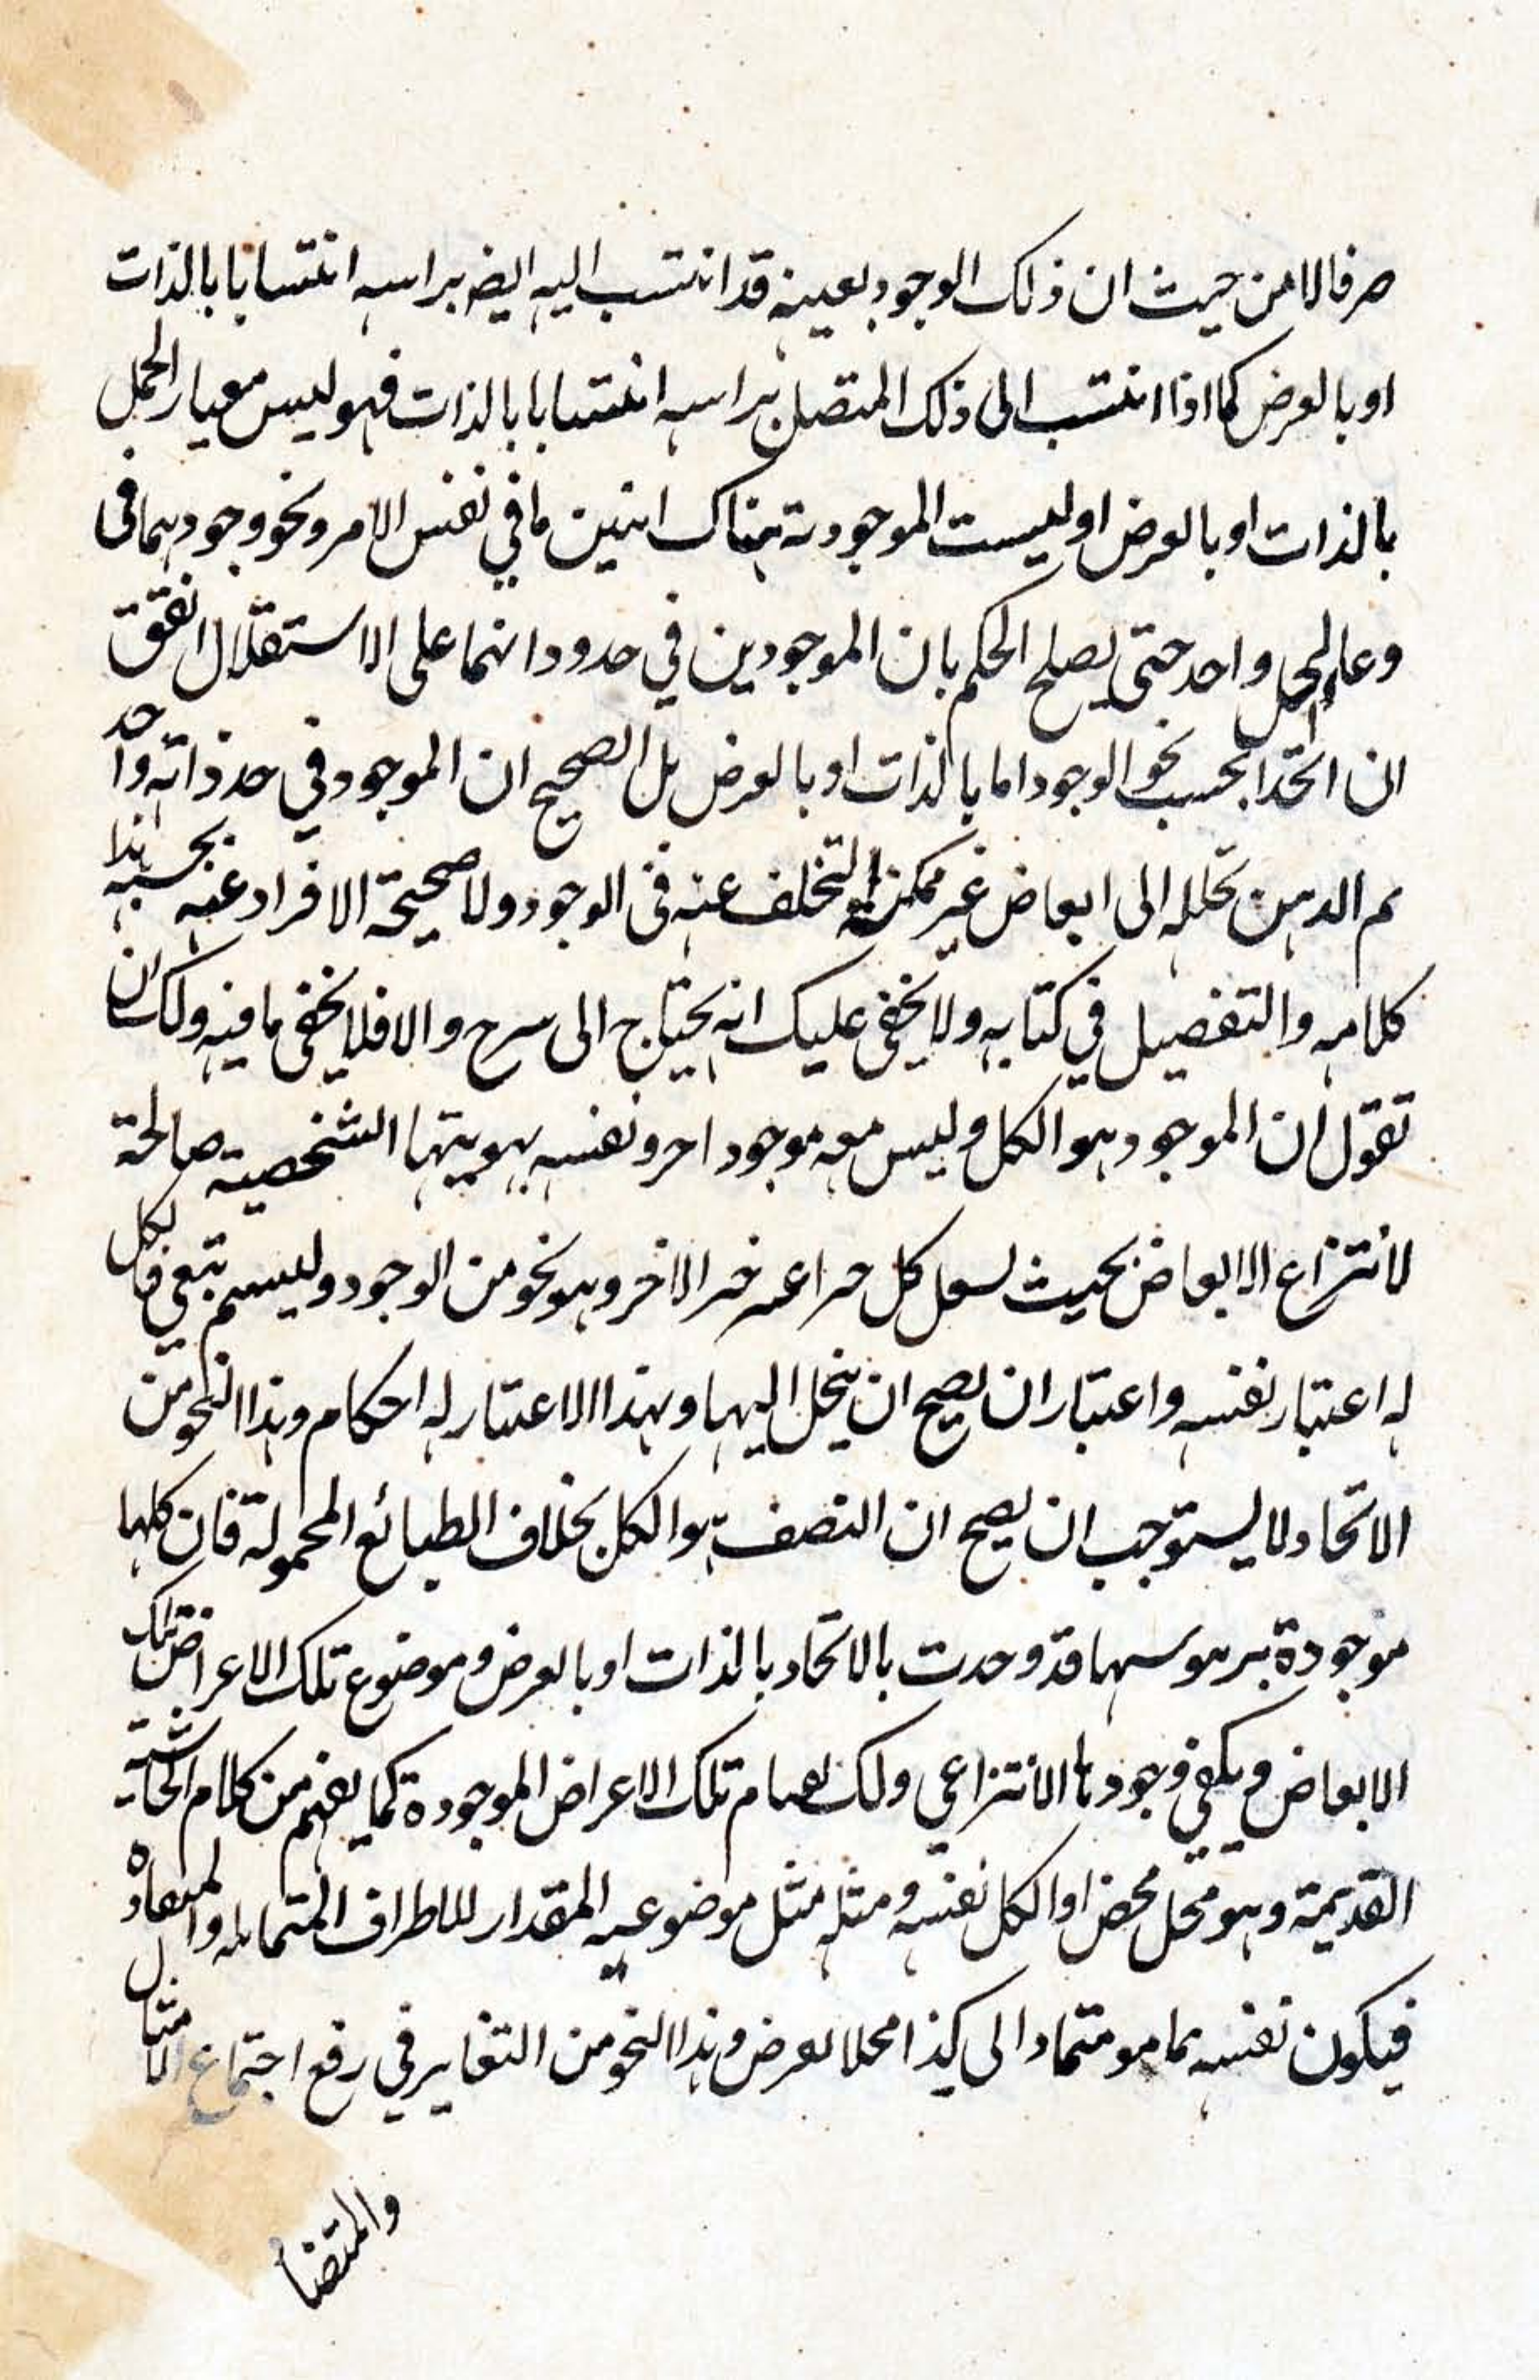 صرفا لا من حيث ان ذلك الوجود بعينه قد انتسب اليه ايضه براسه انتسابا بالذات
او بالعرض كما اذا انتسب الى ذلك المتصل براسه انتسابا بالذات فهو ليس معيار الحمل
بالذات او بالعرض اوليست الموجودية هناك اثنين ما في نفس الامر ونحو وجودهما في
وعاء واحد حتى يصلح الحكم بان الموجودين في حدود انهما على الاستقلال اتفق
ان اتحدا بحسب نحو الوجود اما بالذات او بالعرض بل الصحيح ان الموجود في حد ذاته واحد
ثم الذهن تحلله الى ابعاض غير ممكنة التخلف عنه في الوجود ولا صحيحة الافراد عنه بحسبه هذا
كلامه والتفصيل في كتابه ولا يخفى عليك انه يحتاج الى شرح والا فلا يخفى ما فيه ولك ان
تقول ان الموجود هو الكل وليس معه موجود اخر ونفسه بهويتها الشخصية صالحة
لانتزاع الابعاض بحيث كل الاخر وهو نحو من الوجود وليسم تبعي فالكل
له اعتبار نفسه واعتبار ان يصح ان ينحل اليها وبهذا الاعتبار له احكام وهذا النحو من
الاتحاد لا يستوجب ان يصح ان النصف هو الكل بخلاف الطبائع المحمولة فان كلها
موجودة قد وحدت بالاتحاد بالذات او بالعرض وموضوع تلك الاعراض تلك
الابعاض ويكفي وجودها الانتزاعي ولك تلك الاعراض الموجودة كما يفهم من كلام الحاشية
القديمة وهو محل محض او الكل نفسه ومثله مثل موضوعيه المقدار للاطراف المتمايله والمتضاده
فيكون نفسه بما هو متماد الى كذا محلا لعرض وهذا النحو من التغاير في رفع اجتماع الامثال
والمتضا